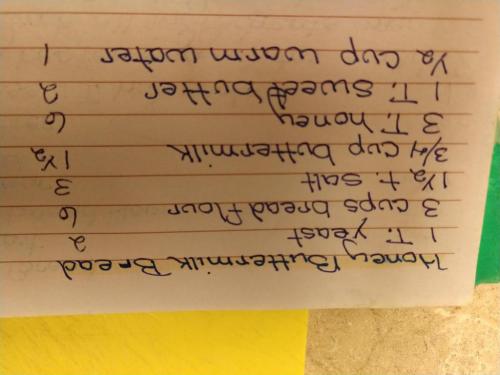 Honey Buttermilk Bread
1 T. yeast 2
3 cups bread flour 6
1 1/2 t. salt 3
3/4 cup buttermilk 1 1/2
3 T. honey 6
1 T. sweet butter 2
1/2 cup warm water 1